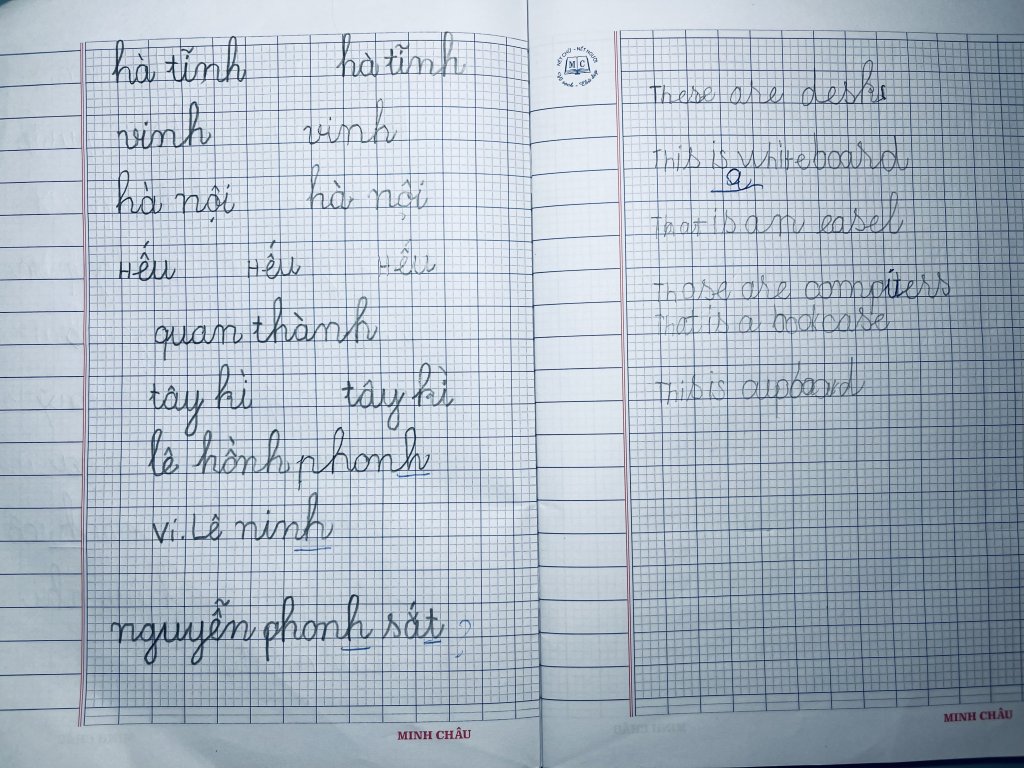 hà tĩnh hà tĩnh
vinh vinh
hà nội hà nội
Hếu Hếu Hếu
quan thành
tây kì tây kì
lê hồnh phonh
Ví. Lê ninh
nguyễn phonh sát ?
MINH CHÂU
NÉT CHỮ - NẾT NGƯỜI
MC
These are desks
This is a whiteboard
That is an easel
Those are computers
That is a bookcase
This is cupboard
MINH CHÂU